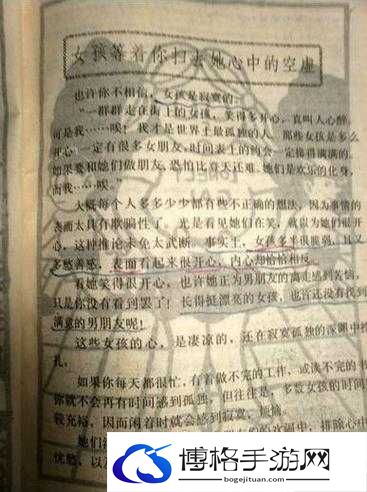 女孩等着你扫去她心中的空虚
也许你不相信，女孩是寂寞的。
“一群群走在街上的女孩，笑得多开心，真叫人心醉，
可是我……唉！我才是世界上最孤独的人，那些女孩是多么
开心，一定有很多女朋友，时间表上的约会一定排得满满的。
如果要和她们做朋友，恐怕比登天还难。她们是欢乐的化身，
而我……唉！
大概每个人多多少少都有些不正确的想法，因为事情的
表面太具有欺骗性了。光是看见她们在笑，就以为她们很开
心，这种推论未免太武断。事实上，女孩多半很脆弱，且又
多愁善感，表面看起来很开心，内心却恰恰相反。
看她笑得很开心，也许她正为男朋友的离走感到苦恼，
只是你没有看到罢了！长得挺漂亮的女孩，也许还没有找到
满意的男朋友呢！
这些女孩的心，是凄凉的，还在寂寞孤独的深渊中挣
扎。
如果你每天都很忙，有着做不完的工作，或读不完的书
你就不会再有时间感到孤独。但往往是，多数女孩的时间
较充裕，因而闲着时就会感到寂寞、烦恼。
她们
的欢闹中，排除心中
忧愁，以
博格手游网
www.bogejituan.com